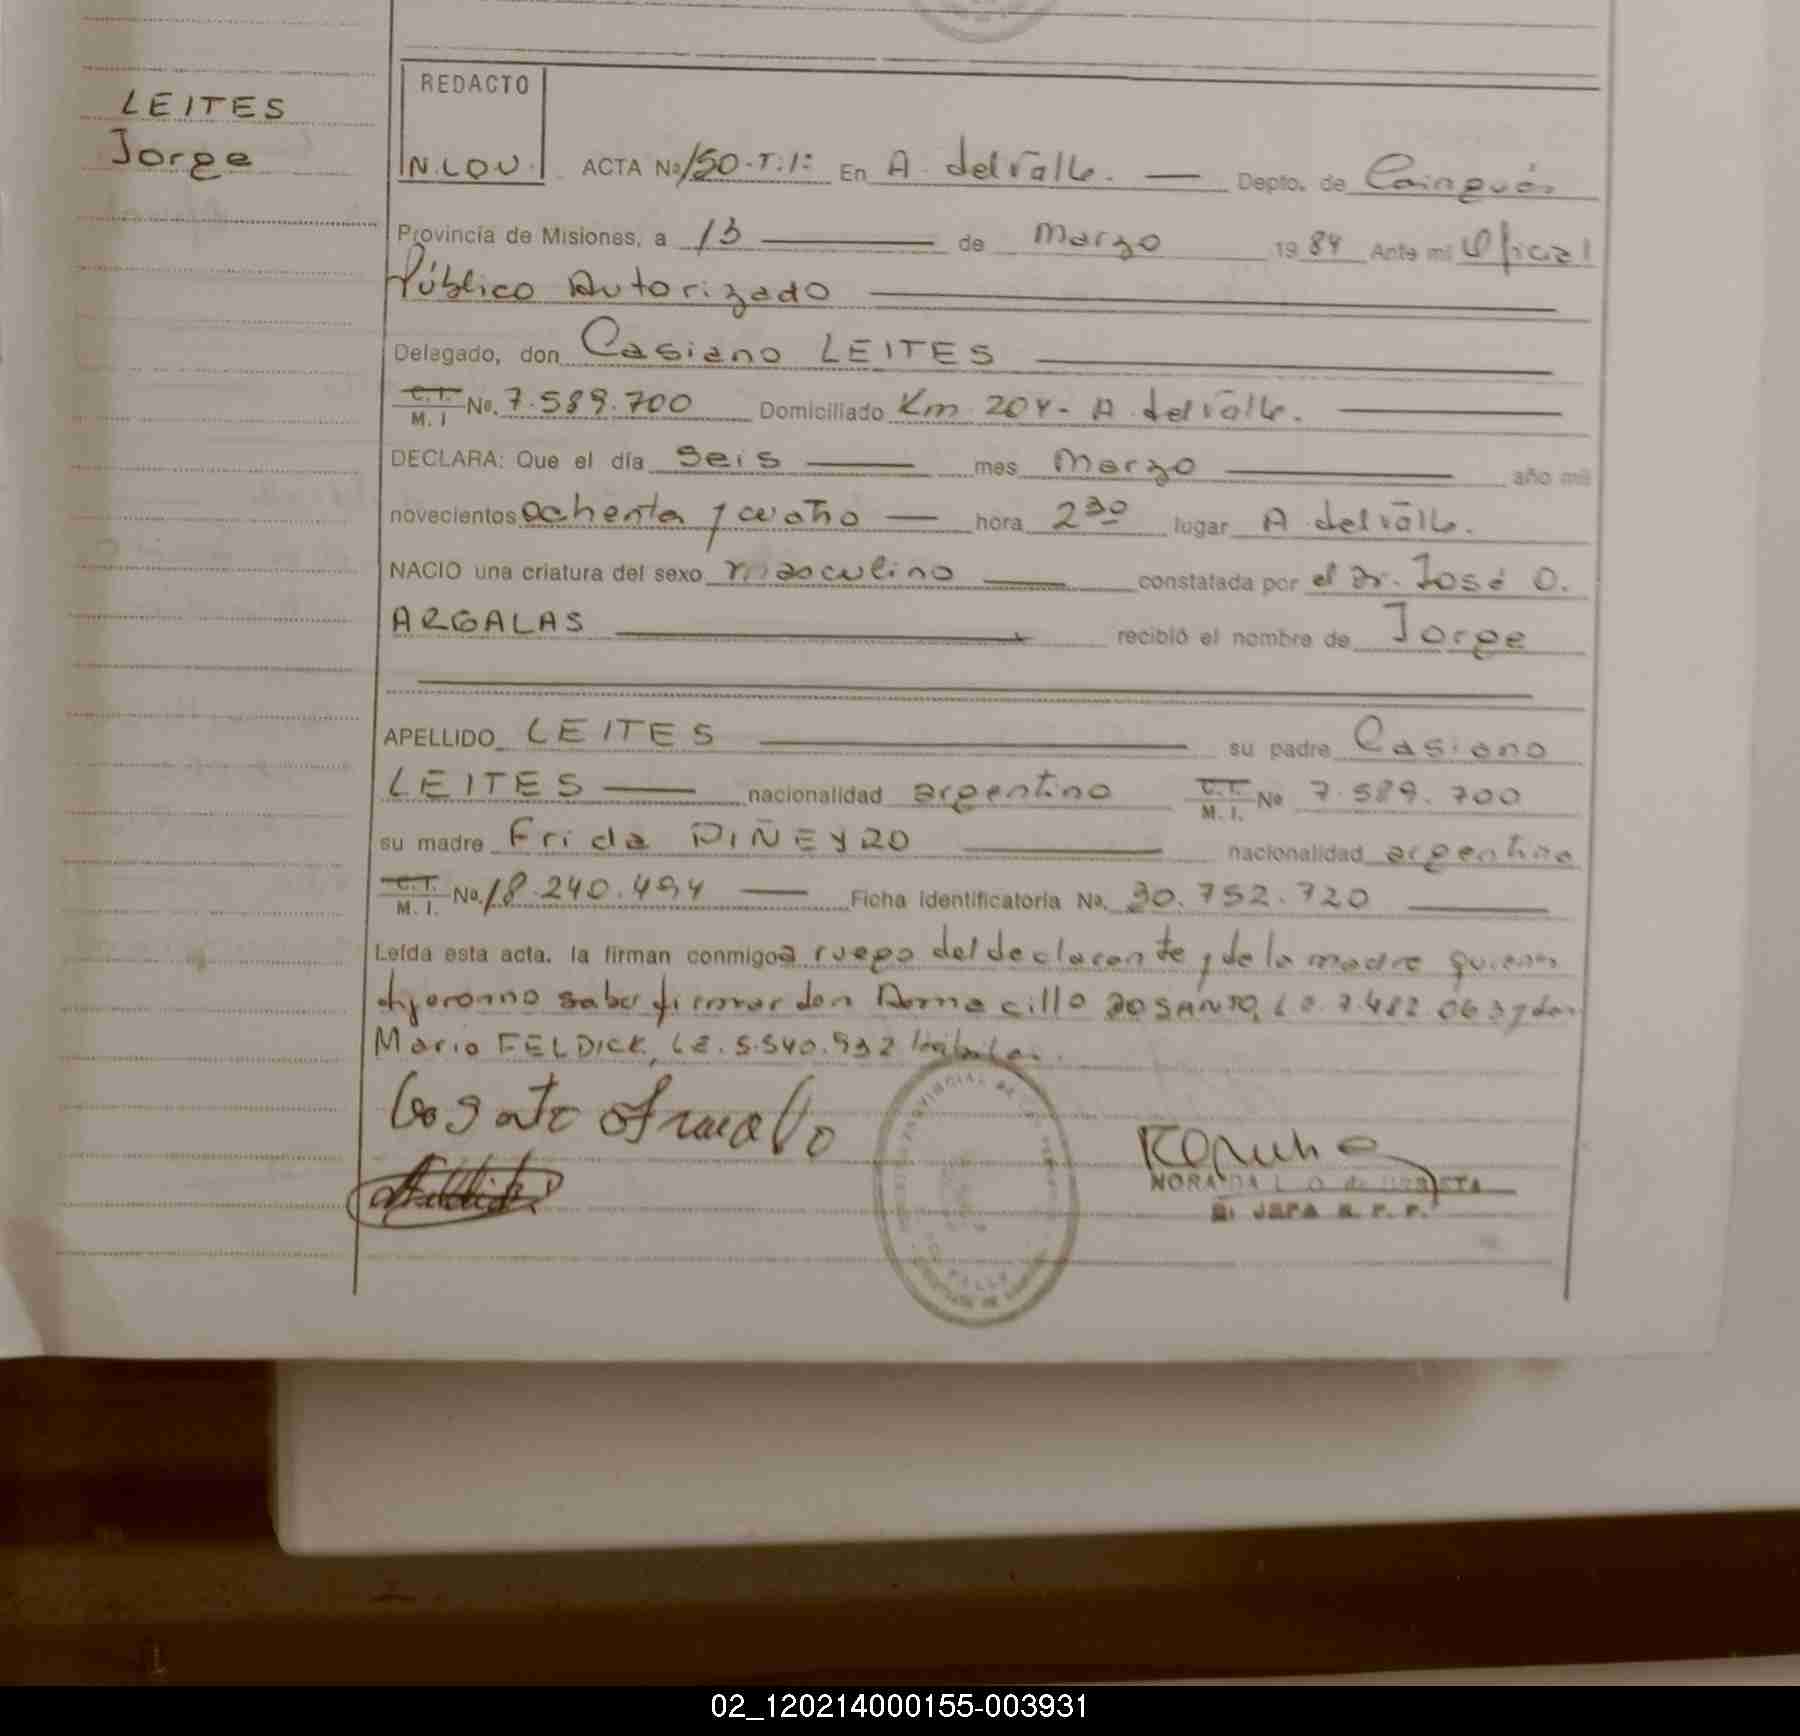 REDACTO
LEITES
Jorge
N.LOU. ACTA Nº 150-T:1: En A. del Valle. — Depto. de Cainguás
Provincia de Misiones, a 13 — de Marzo 1984 Ante mi Oficial
Público Autorizado
Delegado, don Casiano LEITES
C.I. M. I No. 7.589.700 Domiciliado Km. 204- A. del Valle.
DECLARA: Que el día seis — mes Marzo — año mil
novecientos ochenta y cuatro — hora 2 30 lugar A del Valle.
NACIO una criatura del sexo masculino — constatada por el Dr. José O.
ARGALAS — recibió el nombre de Jorge
APELLIDO LEITES — su padre Casiano
LEITES — nacionalidad argentino C.I. M. I. Nº 7.589.700
su madre Frida PIÑEYRO — nacionalidad argentina
C.I. M. I. No. 18.240.494 — Ficha identificatoria Nº 30.752.720
Leída esta acta, la firman conmigo a ruego del declarante y de la madre quienes
dijeron no saber firmar don DOSANTO, L.E. 7.482.063 y don
Mario FELDICK, L.E. 5.540.932
NORA
JEFA R. P. P.
02_120214000155-003931